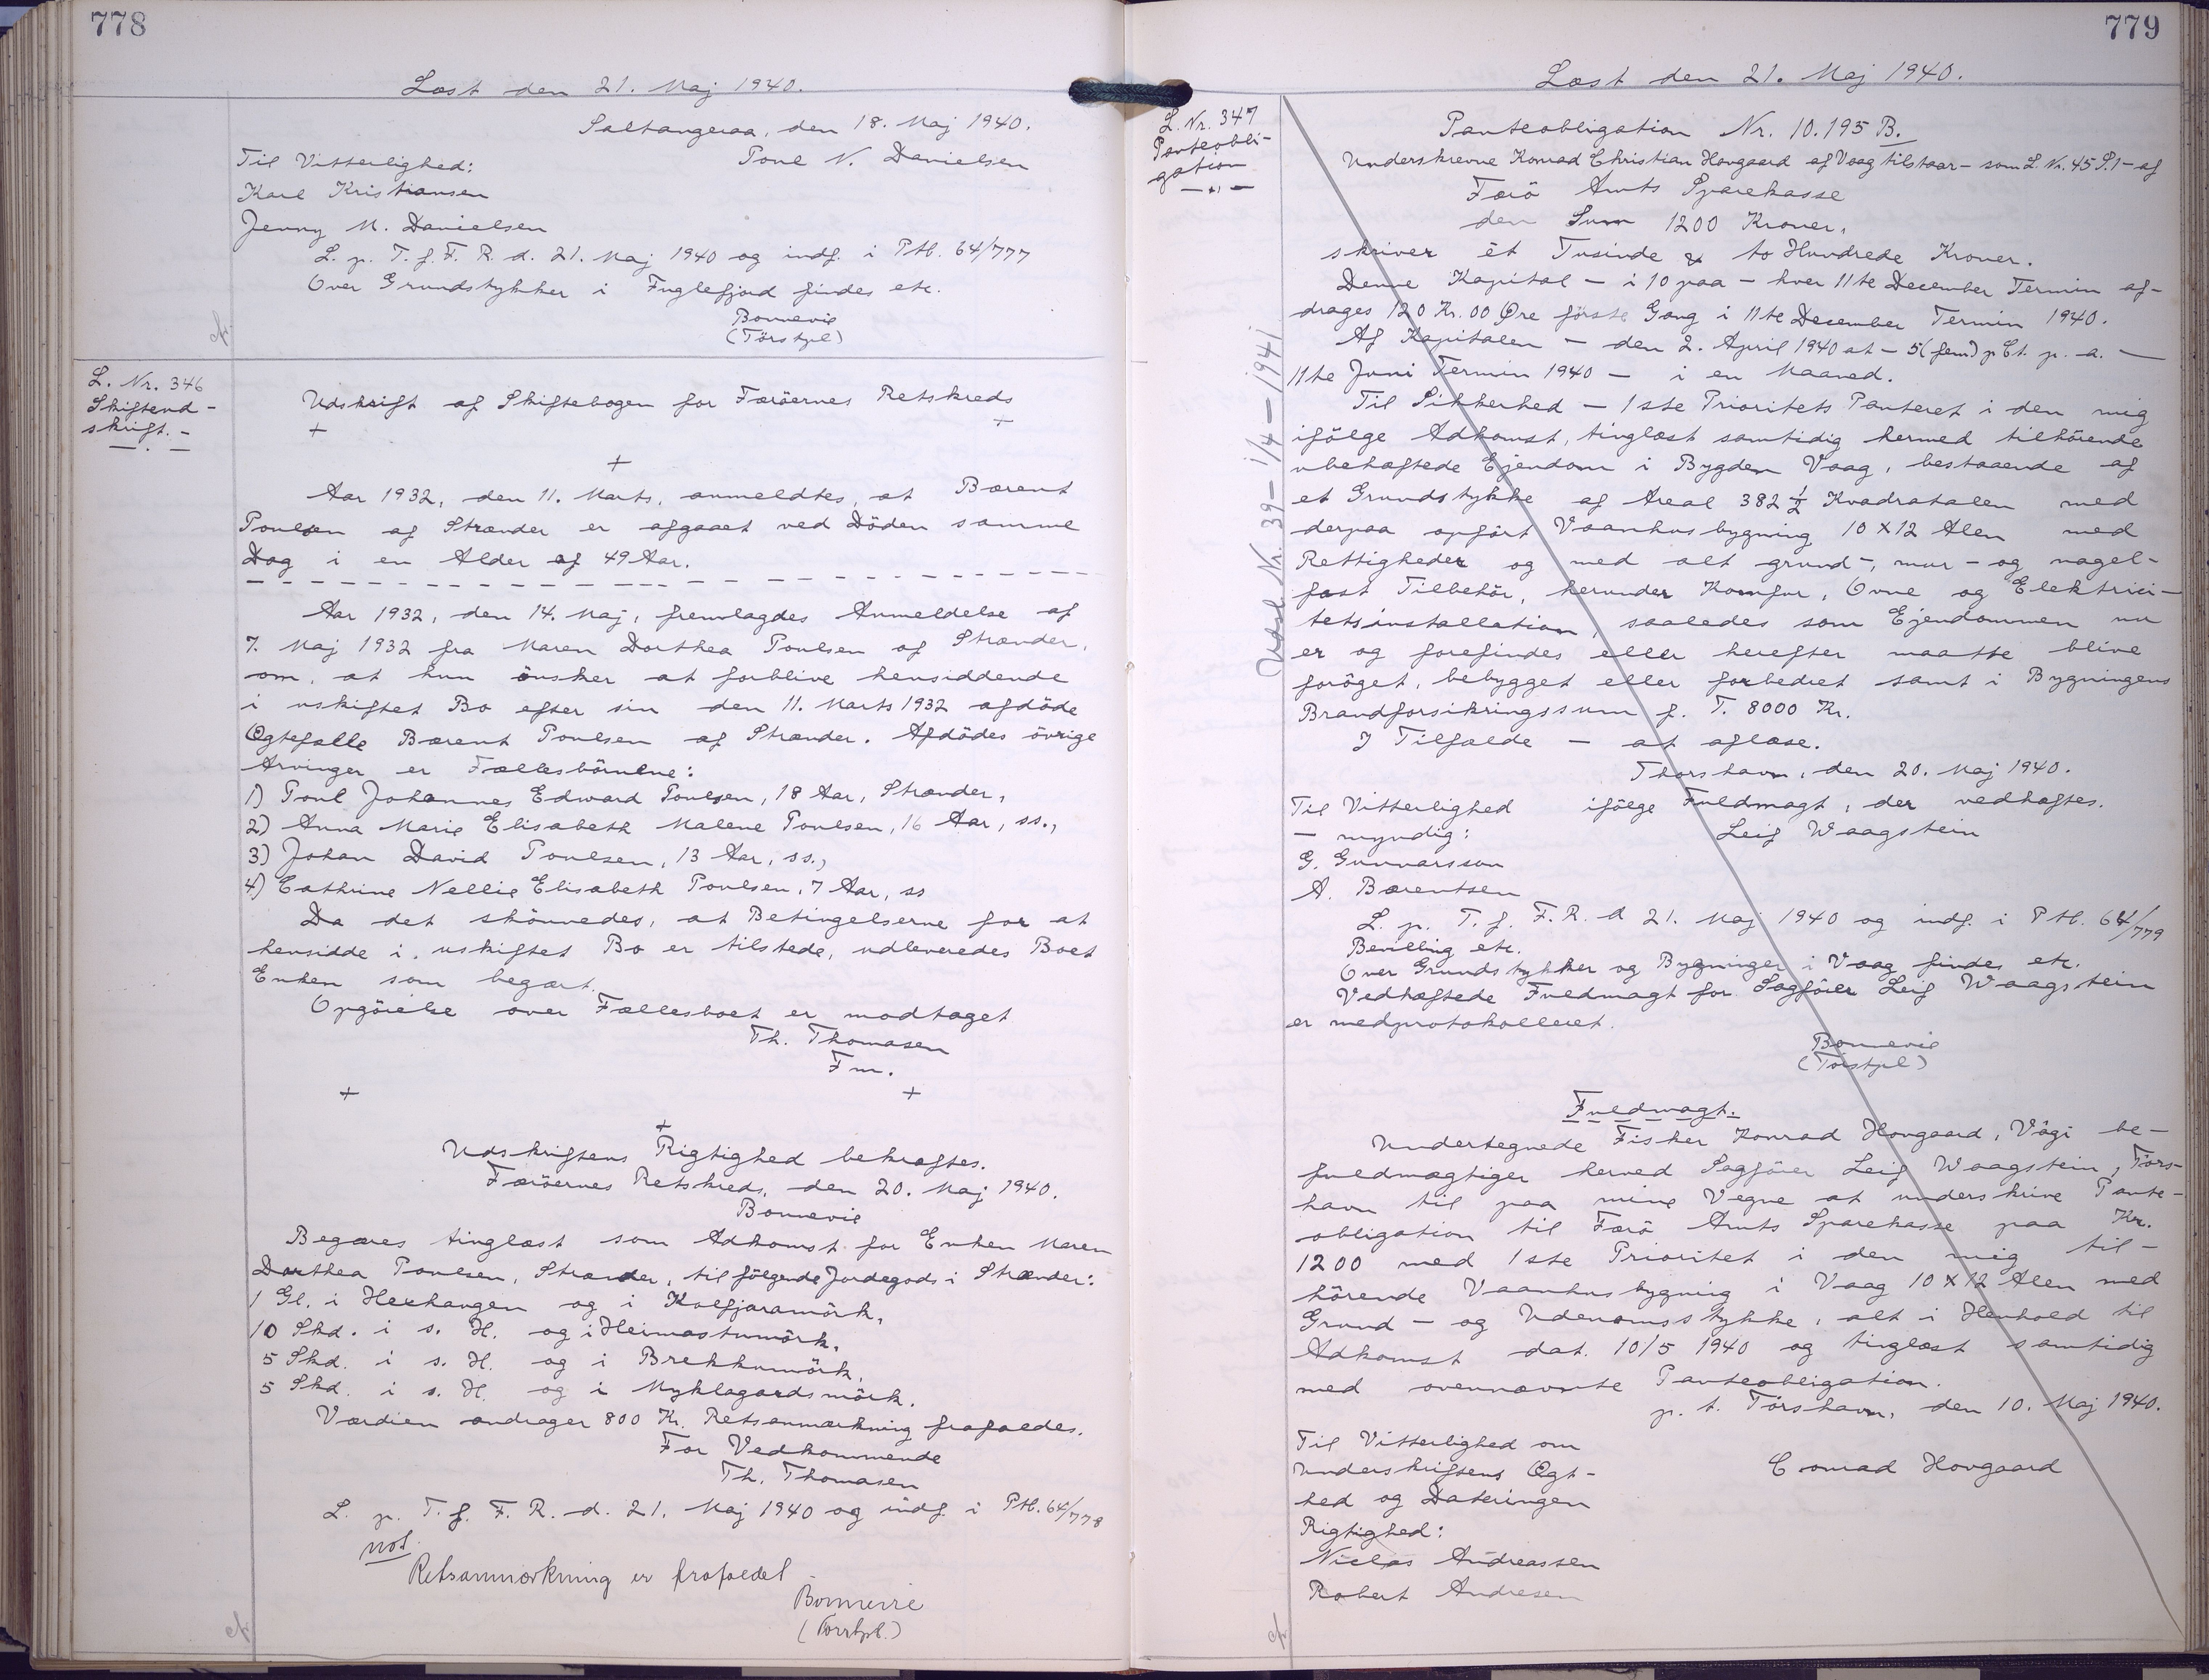 778
Læst den 21. Maj 1940.
Saltangeraa, den 18. Maj 1940.
Til Vitterlighed:
Poul N. Danielsen
Karl Kristiansen
Jenny M. Danielsen
L. p. T. f. F. R. d. 21. Maj 1940 og indf. i Ptb. 64/777
Over Grundstykker i Fuglefjord findes etc.
Bonnevie
(Törstpl)
cf.
L. Nr. 346
Skifteud-
skrift. -
Udskrift af Skiftebogen for Færöernes Retskreds
+ +
+
Aar 1932, den 11. Marts, anmeldtes, at Bærent
Poulsen af Strænder er afgaaet ved Döden samme
Dag i en Alder af 49 Aar.
Aar 1932, den 14. Maj, fremlagdes Anmeldelse af
7. Maj 1932 fra Maren Dorthea Poulsen af Strænder,
om, at hun önsker at forblive hensiddende
i uskiftet Bo efter sin den 11. Marts 1932 afdöde
Ægtefælle Bærent Poulsen af Strænder. Afdödes övrige
Arvinger er Fællesbörnene:
1) Poul Johannes Edward Poulsen, 18 Aar, Strænder,
2) Anna Marie Elisabeth Malene Poulsen, 16 Aar, ss.,
3) Johan David Poulsen, 13 Aar, ss.,
4) Cathrine Nellie Elisabeth Poulsen, 7 Aar, ss
Da det skönnedes, at Betingelserne for at
hensidde i uskiftet Bo er tilstede, udleveredes Boet
Enken som begært.
Opgörelse over Fællesboet er modtaget
Th. Thomasen
Fm.
+ +
+
Udskriftens Rigtighed bekræftes.
Færöernes Retskreds, den 20. Maj 1940.
Bonnevie
Begæres tinglæst som Adkomst for Enken Maren
Dorthea Poulsen, Strænder, til fölgende Jordegods i Strænder:
1 Gl. i Hexhaugen og i Kolfjaramörk,
10 Skd. i s. H. og i Heimastumörk,
5 Skd. i s. H. og i Brekkumörk,
5 Skd. i s. H. og i Myklagardsmörk.
Værdien andrager 800 Kr. Retsanmærkning frafaldes.
For Vedkommende
Th. Thomasen
L. p. T. f. F. R. d. 21. Maj 1940 og indf. i Ptb. 64/778
not
Retsanmærkning er frafaldet
Bonnevie
(Törstpl.)
cf.
779
Læst den 21. Maj 1940.
L. Nr. 347
Panteobli-
gation
Panteobligation Nr. 10.195 B.
Underskrevne Konrad Christian Hovgaard af Vaag tilstaar - som L. Nr. 45 S.1 - af
Færö Amts Sparekasse
den Sum 1200 Kroner,
skriver ét Tusinde & to Hundrede Kroner.
Denne Kapital - i 10 paa - hver 11te December Termin af-
drages 120 Kr. 00 Øre förste Gang i 11te December Termin 1940.
Af Kapitalen - den 2. April 1940 at - 5 (fem) p Ct. p. a. -
11te Juni Termin 1940 - i en Maaned.
Til Sikkerhed - 1ste Prioritets Panteret i den mig
ifölge Adkomst, tinglæst samtidig hermed tilhörende
ubehæftede Ejendom i Bygden Vaag, bestaaende af
et Grundstykke af Areal 382 1/2 Kvadratalen med
derpaa opfört Vaanhusbygning 10 X 12 Alen med
Rettigheder og med alt grund-, mur- og nagel-
fast Tilbehör, herunder Komfur, Ovne og Elektrici-
tetsinstallation, saaledes som Ejendommen nu
er og forefindes eller herefter maatte blive
foröget, bebygget eller forbedret samt i Bygningens
Brandforsikringssum f. T. 8000 Kr.
I Tilfælde - at aflæse.
Thorshavn, den 20. Maj 1940.
Til Vitterlighed ifölge Fuldmagt, der vedhæftes.
- myndig: Leif Waagstein
G. Gunnarsson
A. Bærentsen
L. p. T. f. F. R. d 21. Maj 1940 og indf. i Ptb. 64/779
Bevilling etc.
Over Grundstykker og Bygninger i Vaag findes etc.
Vedhæftede Fuldmagt for Sagförer Leif Waagstein
er medprotokolleret.
Bonnevie
(Törstpl)
Udsl. Nr. 39 - 1/4 - 1941
Fuldmagt.
Undertegnede Fisker Konrad Hovgaard, Vági be-
fuldmægtiger herved Sagförer Leif Waagstein, Törs-
havn til paa mine Vegne at underskrive Pante-
obligation til Færö Amts Sparekasse paa Kr.
1200 med 1ste Prioritet i den mig til-
hörende Vaanhusbygning i Vaag 10 X 12 Alen med
Grund- og Udenomsstykke, alt i Henhold til
Adkomst dat. 10/5 1940 og tinglæst samtidig
med ovennævnte Panteobligation.
p. t. Törshavn, den 10. Maj 1940.
Til Vitterlighed om
Underskriftens Ægt-
hed og Dateringen
Rigtighed:
Conrad Hovgaard
Niclas Andreassen
Robert Andresen
cf.